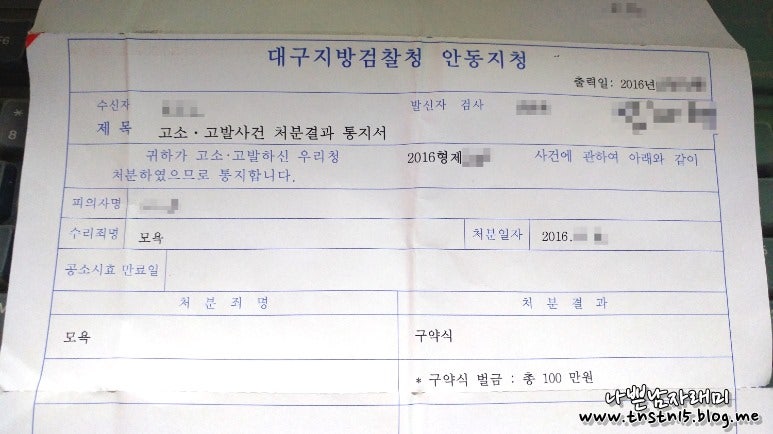 대구지방검찰청 안동지청
출력일: 2016년
수신자 발신자 검사
제 목 고소·고발사건 처분결과 통지서
귀하가 고소·고발하신 우리청 2016형제 사건에 관하여 아래와 같이
처분하였으므로 통지합니다.
피의사명
수리죄명 모욕 처분일자 2016.
공소시효 만료일
처 분 죄 명 처 분 결 과
모욕 구약식
* 구약식 벌금 : 총 100 만원
나쁜남자래미
www.tnstnl5.blog.me
F6
*
8